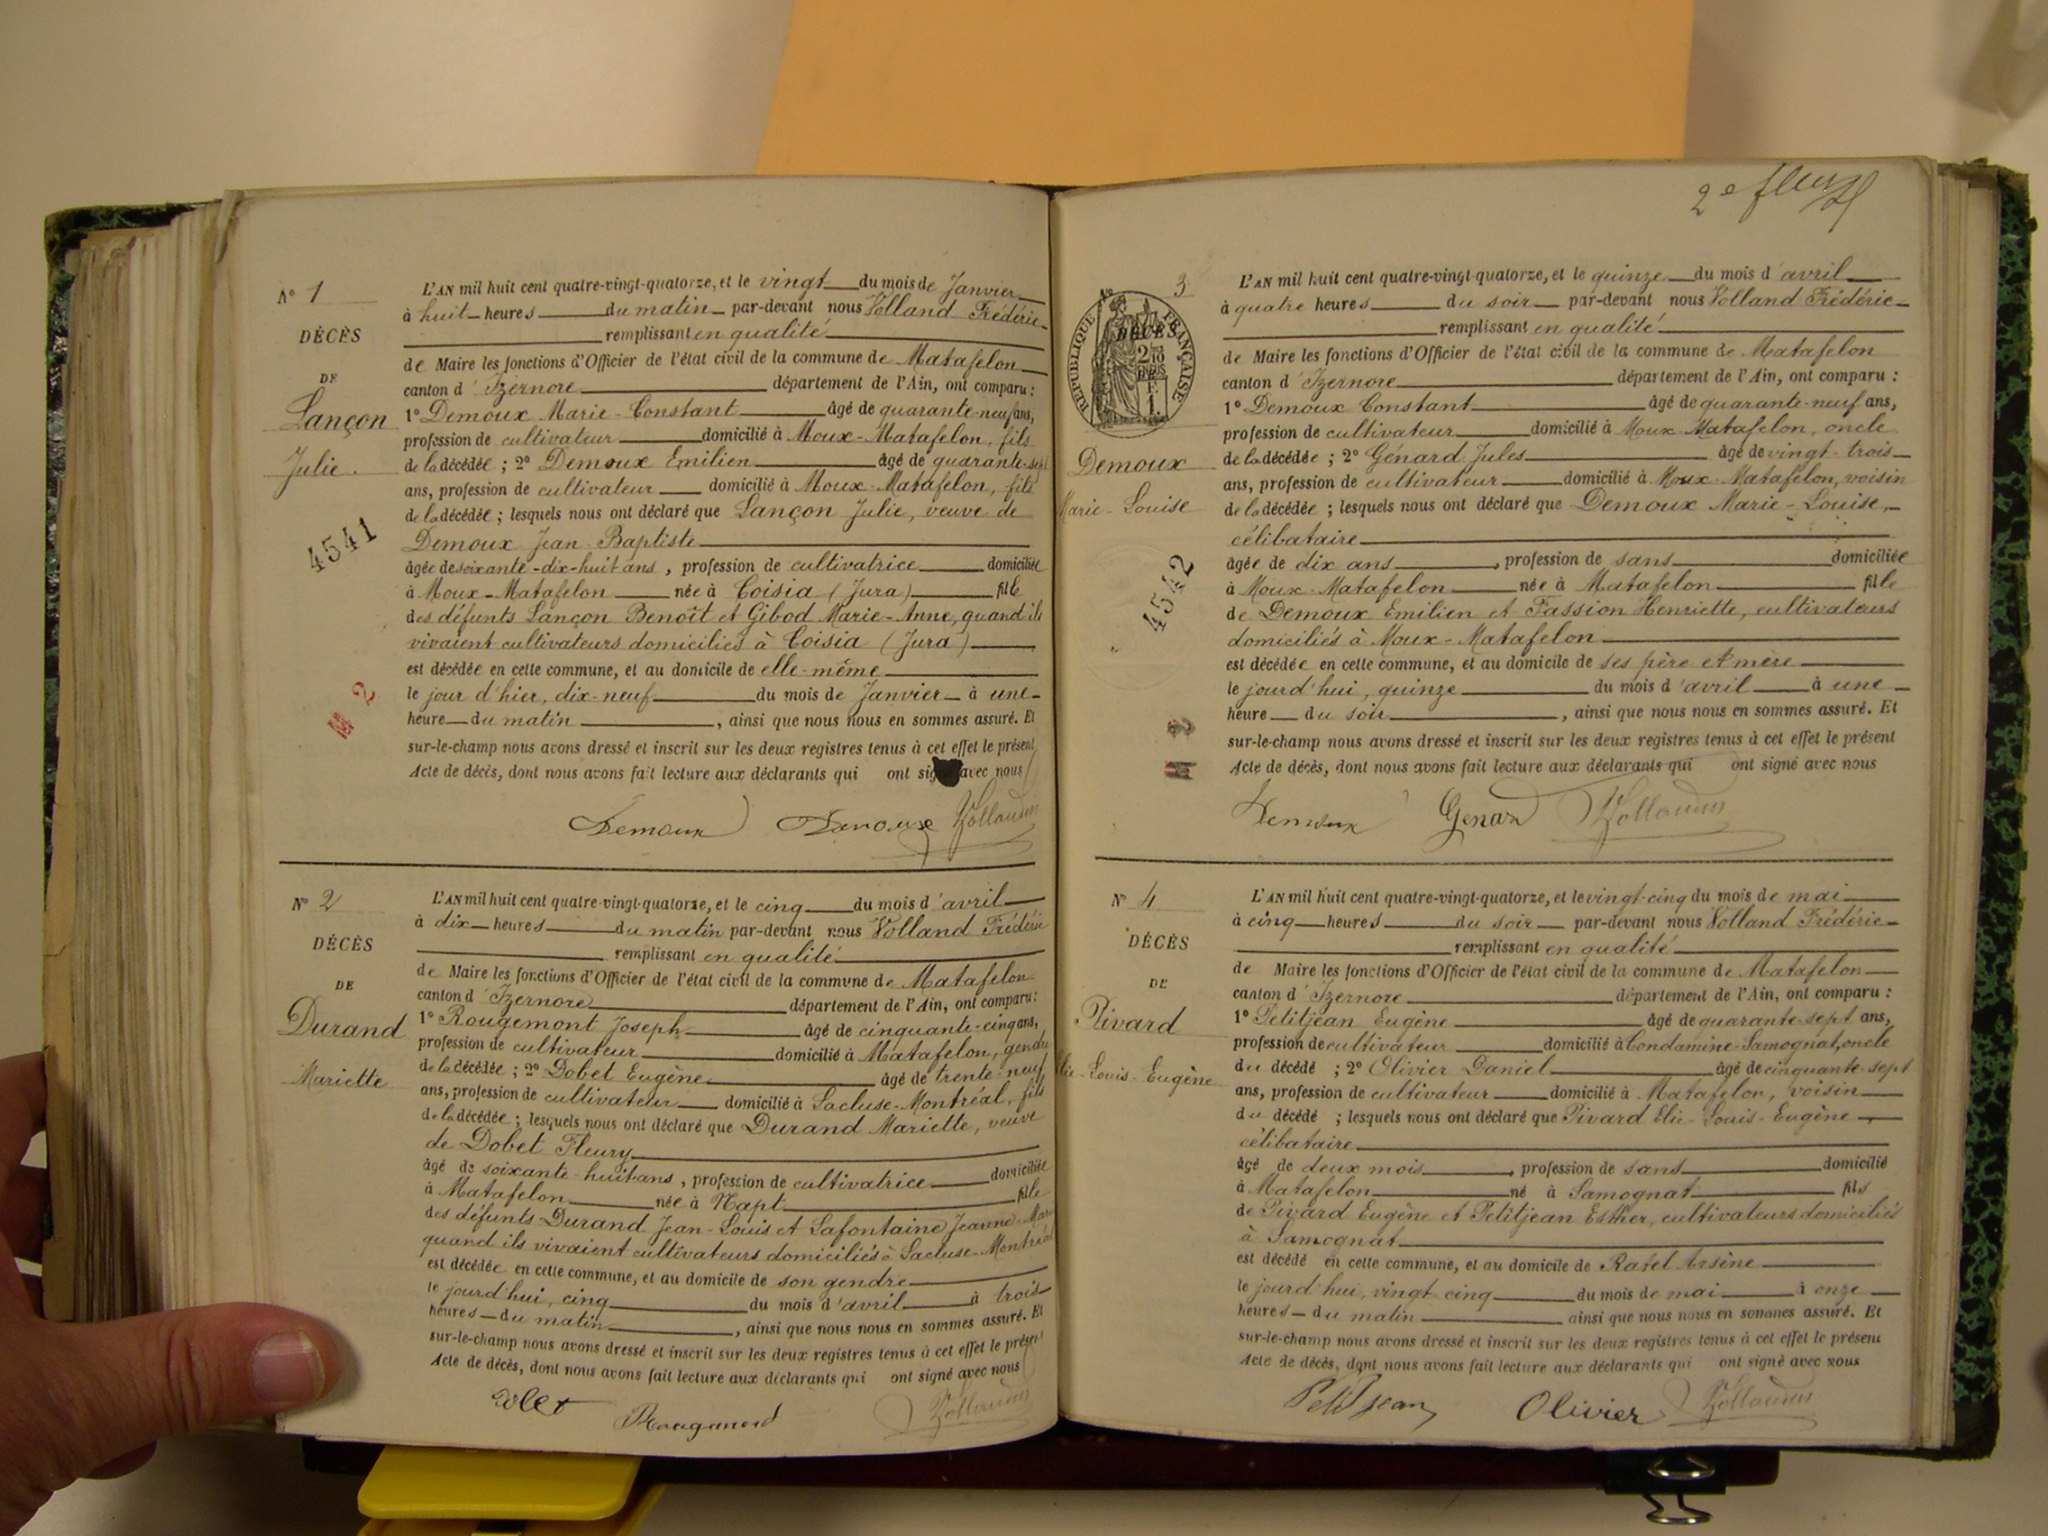 N° 1
DÉCÈS
DE
Lançon
Julie.
4541
M 2
L'AN mil huit cent quatre-vingt-quatorze, et le vingt du mois de Janvier
à huit heures du matin par-devant nous Volland Frédéric
remplissant en qualité
de Maire les fonctions d'Officier de l'état civil de la commune de Matafelon
canton d'Izernore département de l'Ain, ont comparu :
1° Demoux Marie-Constant âgé de quarante-neuf ans,
profession de cultivateur domicilié à Moux-Matafelon, fils
de la décédée ; 2° Demoux Emilien âgé de quarante-sept
ans, profession de cultivateur domicilié à Moux-Matafelon, fils
de la décédée ; lesquels nous ont déclaré que Lançon Julie, veuve de
Demoux Jean-Baptiste
âgée de soixante-dix-huit ans, profession de cultivatrice domiciliée
à Moux-Matafelon née à Coisia (Jura) fille
des défunts Lançon Benoît et Gibod Marie-Anne, quand ils
vivaient cultivateurs domiciliés à Coisia (Jura)
est décédée en cette commune, et au domicile de elle-même
le jour d'hier, dix-neuf du mois de Janvier à une
heure du matin, ainsi que nous nous en sommes assuré. Et
sur-le-champ nous avons dressé et inscrit sur les deux registres tenus à cet effet le présent
Acte de décès, dont nous avons fait lecture aux déclarants qui ont signé avec nous
Demoux Demoux Vollandus
N° 2
DÉCÈS
DE
Durand
Mariette
L'AN mil huit cent quatre-vingt-quatorze, et le cinq du mois d'avril
à dix heures du matin par-devant nous Volland Frédéric
remplissant en qualité
de Maire les fonctions d'Officier de l'état civil de la commune de Matafelon
canton d'Izernore département de l'Ain, ont comparu :
1° Rougemont Joseph âgé de cinquante-cinq ans,
profession de cultivateur domicilié à Matafelon, gendre
de la décédée ; 2° Dobet Eugène âgé de trente-neuf
ans, profession de cultivateur domicilié à Lacluse-Montréal, fils
de la décédée ; lesquels nous ont déclaré que Durand Mariette, veuve
de Dobet Fleury
âgé de soixante-huit ans, profession de cultivatrice domiciliée
à Matafelon née à Napt fille
des défunts Durand Jean-Louis et Lafontaine Jeanne-Marie
quand ils vivaient cultivateurs domiciliés à Lacluse-Montréal
est décédée en cette commune, et au domicile de son gendre
le jourd'hui, cinq du mois d'avril à trois
heures du matin, ainsi que nous nous en sommes assuré. Et
sur-le-champ nous avons dressé et inscrit sur les deux registres tenus à cet effet le présent
Acte de décès, dont nous avons fait lecture aux déclarants qui ont signé avec nous
Dobet Rougemond Vollandus
2e
N° 3
RÉPUBLIQUE FRANÇAISE
DÉCÈS
Demoux
Marie-Louise
4542
L'AN mil huit cent quatre-vingt-quatorze, et le quinze du mois d'avril
à quatre heures du soir par-devant nous Volland Frédéric
remplissant en qualité
de Maire les fonctions d'Officier de l'état civil de la commune de Matafelon
canton d'Izernore département de l'Ain, ont comparu :
1° Demoux Constant âgé de quarante-neuf ans,
profession de cultivateur domicilié à Moux-Matafelon, oncle
de la décédée ; 2° Génard Jules âgé de vingt-trois
ans, profession de cultivateur domicilié à Moux-Matafelon, voisin
de la décédée ; lesquels nous ont déclaré que Demoux Marie-Louise,
célibataire
âgée de dix ans, profession de sans domiciliée
à Moux-Matafelon née à Matafelon fille
de Demoux Emilien et Fassion Henriette, cultivateurs
domiciliés à Moux-Matafelon
est décédée en cette commune, et au domicile de ses père et mère
le jourd'hui, quinze du mois d'avril à une
heure du soir, ainsi que nous nous en sommes assuré. Et
sur-le-champ nous avons dressé et inscrit sur les deux registres tenus à cet effet le présent
Acte de décès, dont nous avons fait lecture aux déclarants qui ont signé avec nous
Demoux Genard Vollandus
N° 4
DÉCÈS
DE
Pivard
Elie-Louis-Eugène
L'AN mil huit cent quatre-vingt-quatorze, et le vingt-cinq du mois de mai
à cinq heures du soir par-devant nous Volland Frédéric
remplissant en qualité
de Maire les fonctions d'Officier de l'état civil de la commune de Matafelon
canton d'Izernore département de l'Ain, ont comparu :
1° Petitjean Eugène âgé de quarante-sept ans,
profession de cultivateur domicilié à Condamine-Samognat, oncle
du décédé ; 2° Olivier Daniel âgé de cinquante-sept
ans, profession de cultivateur domicilié à Matafelon, voisin
du décédé ; lesquels nous ont déclaré que Pivard Elie-Louis-Eugène
célibataire
âgé de deux mois, profession de sans domicilié
à Matafelon né à Samognat fils
de Pivard Eugène et Petitjean Esther, cultivateurs domiciliés
à Samognat
est décédé en cette commune, et au domicile de Ratel Arsène
le jourd'hui, vingt cinq du mois de mai à onze
heures du matin ainsi que nous nous en sommes assuré. Et
sur-le-champ nous avons dressé et inscrit sur les deux registres tenus à cet effet le présent
Acte de décès, dont nous avons fait lecture aux déclarants qui ont signé avec nous
Petitjean Olivier Vollandus